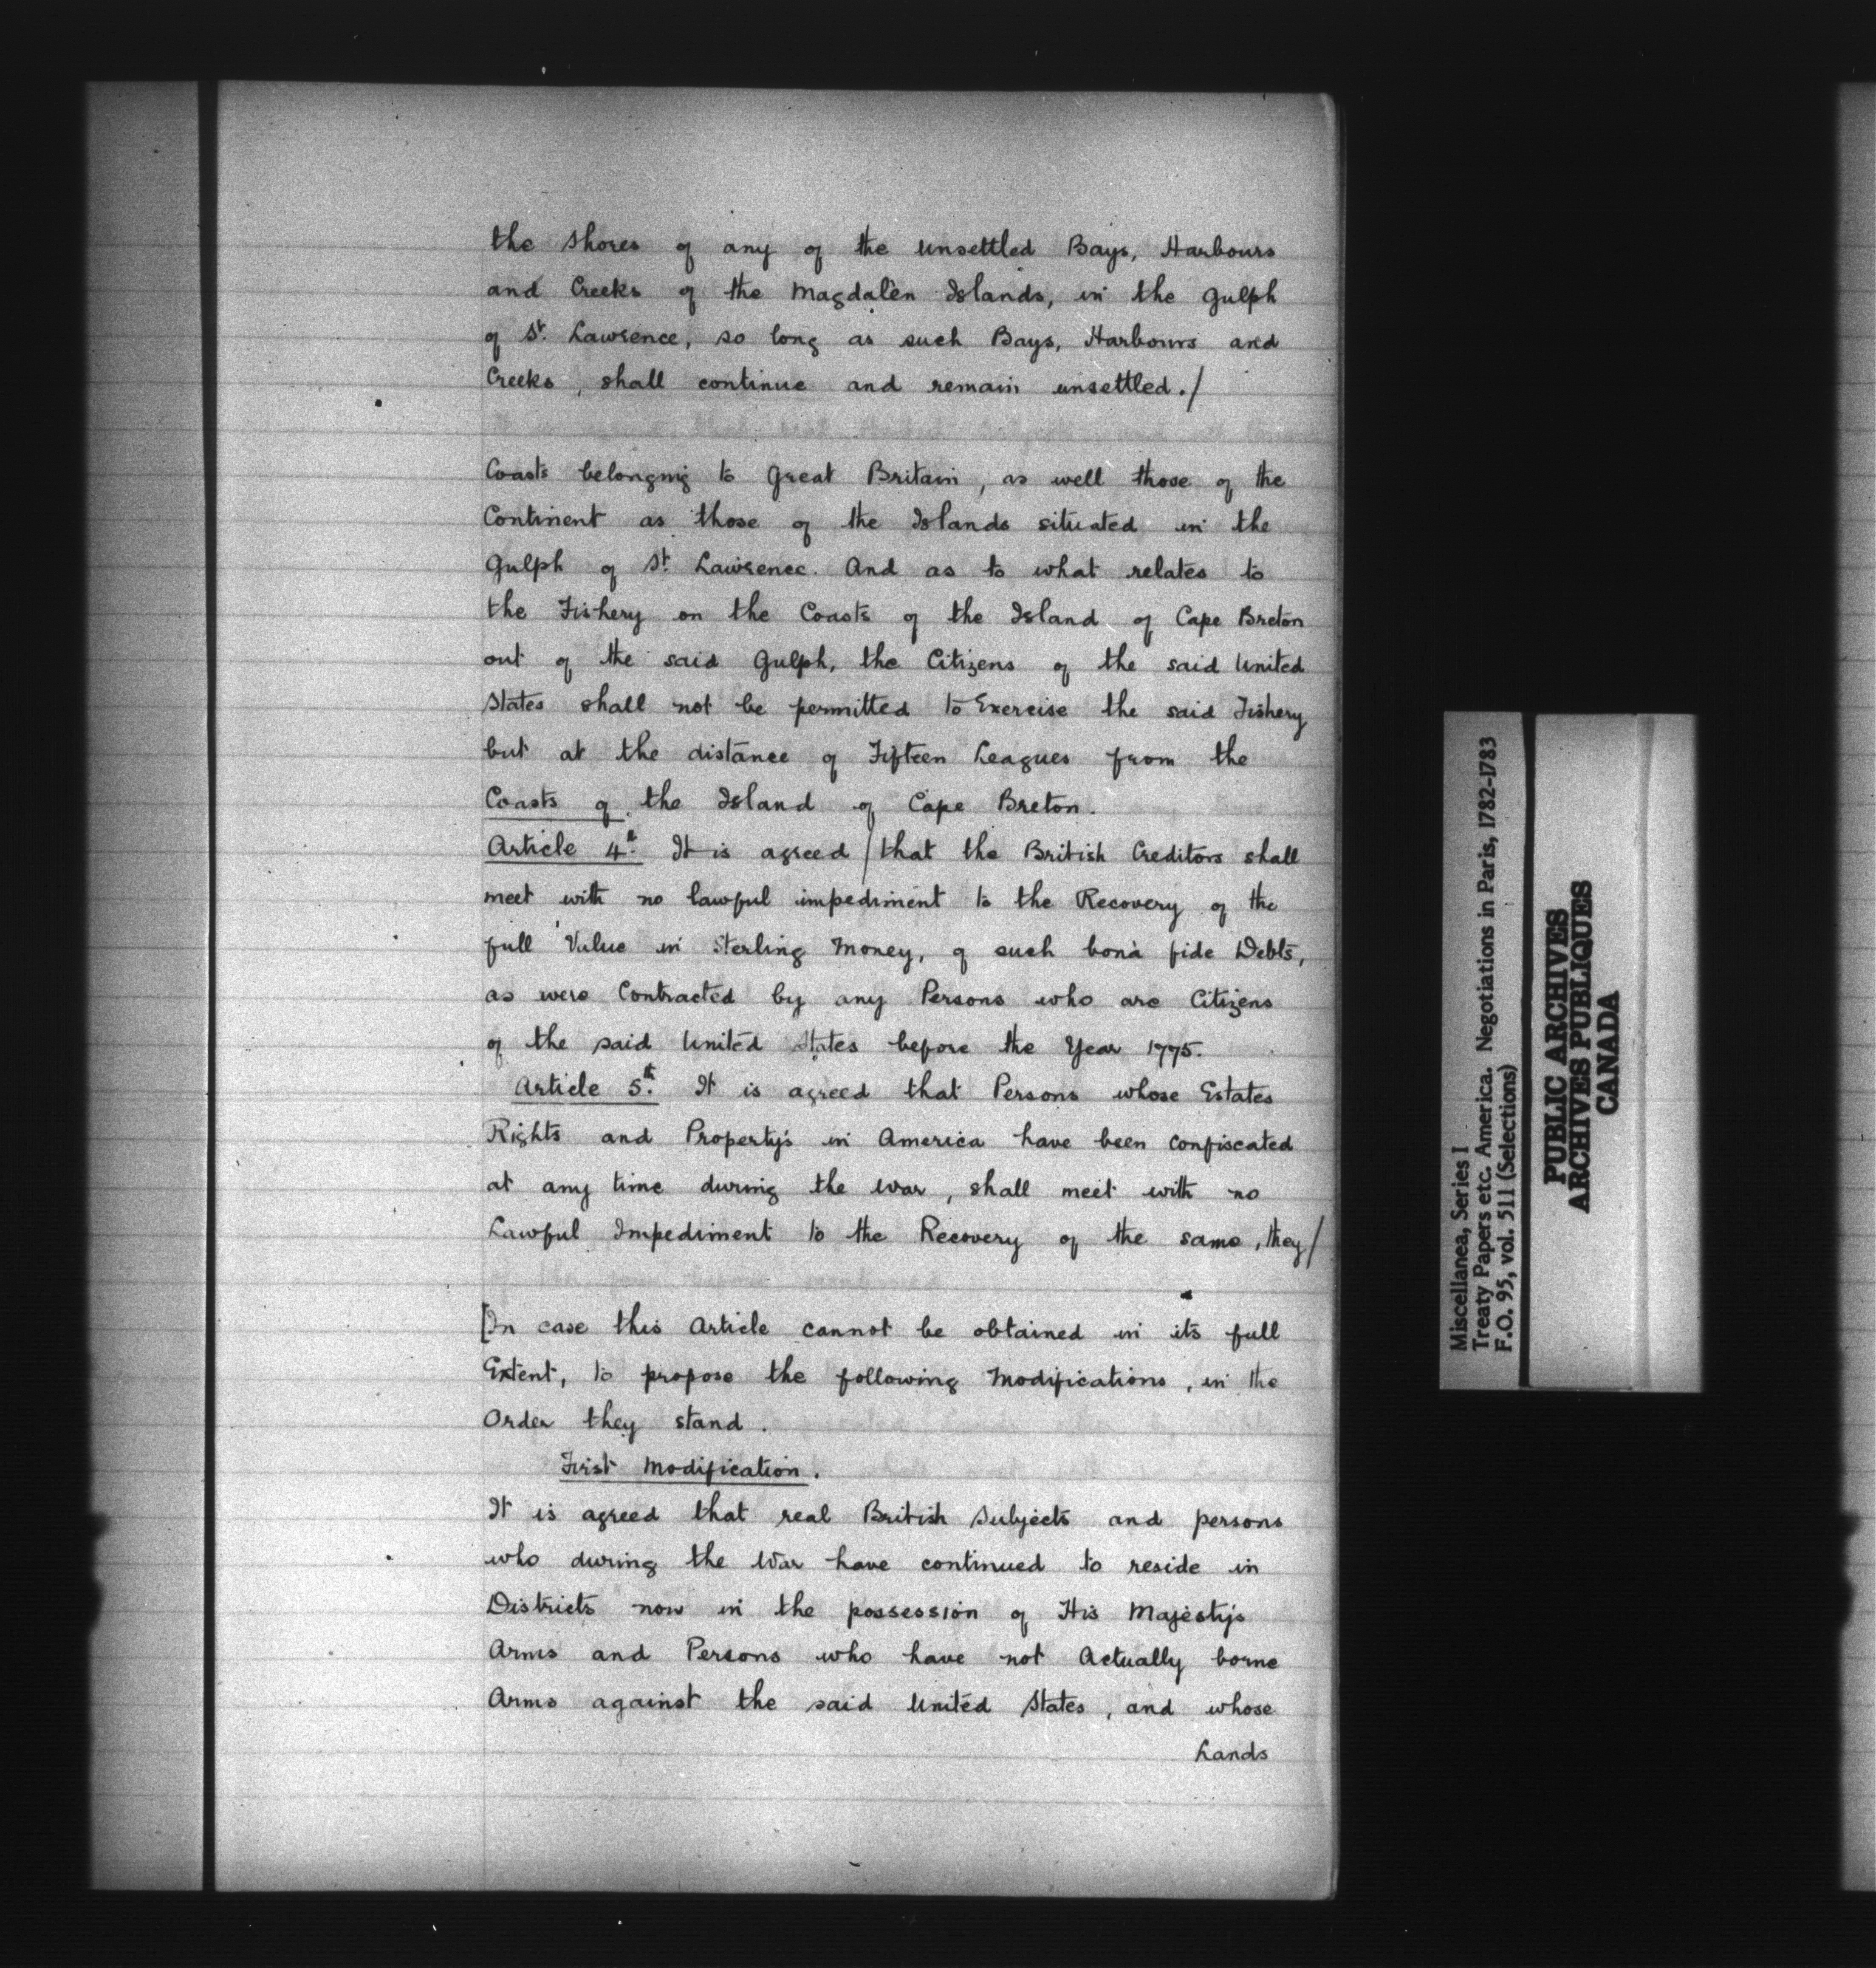 the Shores of any of the unsettled Bays, Harbours
and Creeks of the Magdalen Islands, in the Gulph
of St. Lawrence, so long as such Bays, Harbours and
Creeks, shall continue and remain unsettled./
Coasts belonging to Great Britain, as well those of the
Continent as those of the Islands situated in the
Gulph of St. Lawrence. And as to what relates to
the Fishery on the Coasts of the Island of Cape Breton
out of the said Gulph, the Citizens of the said United
States shall not be permitted to Exercise the said Fishery
but at the distance of Fifteen Leagues from the
Coasts of the Island of Cape Breton.
Article 4th. It is agreed / that the British Creditors shall
meet with no lawful impediment to the Recovery of the
full Value in Sterling Money, of such bonà fide Debts,
as were Contracted by any Persons who are Citizens
of the said United States before the Year 1775.
Article 5th. It is agreed that Persons whose Estates
Rights and Property's in America have been confiscated
at any time during the War, shall meet with no
Lawful Impediment to the Recovery of the same, they/
[In case this Article cannot be obtained in its full
Extent, to propose the following Modifications, in the
Order they stand.
First Modification.
It is agreed that real British Subjects and persons
who during the War have continued to reside in
Districts now in the possession of His Majesty's
Arms and Persons who have not Actually borne
Arms against the said United States, and whose
Lands
Miscellanea, Series I
Treaty Papers etc. America. Negotiations in Paris, 1782-1783
F.O. 95, vol. 511 (Selections)
PUBLIC ARCHIVES
ARCHIVES PUBLIQUES
CANADA